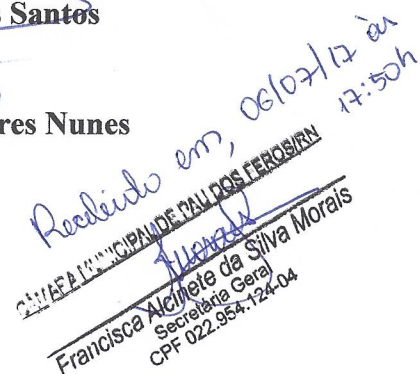 Santos
res Nunes
Recebido em, 06/07/17 às
17:50h
CÂMARA MUNICIPAL DE PAU DOS FERROS/RN
Francisca Alcinete da Silva Morais
Secretária Geral
CPF 022.954.124-04